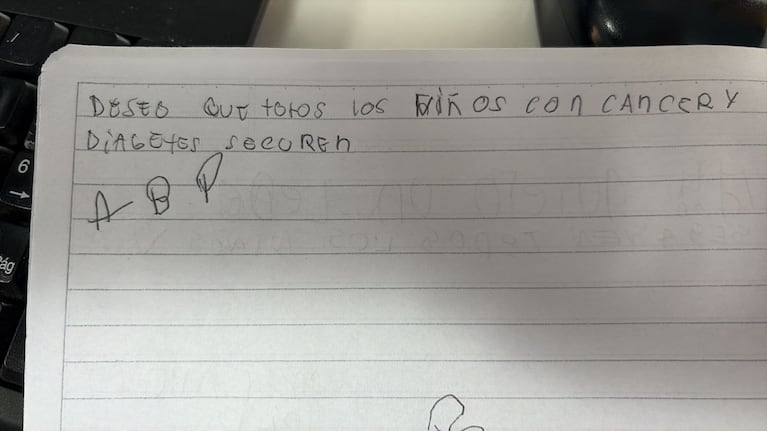 DESEO QUE totos los niños con CANCER Y
DiAGEtES SECUREn
A B P
6
Pág